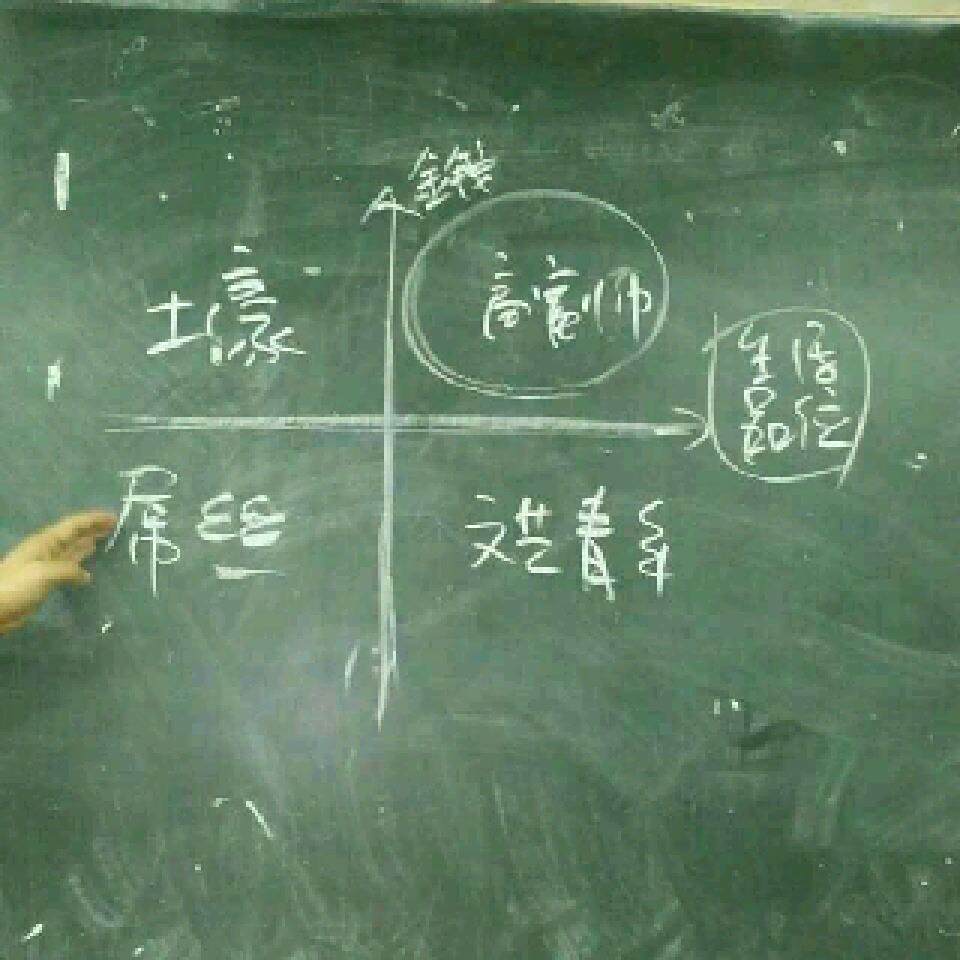 金钱
土豪
高富帅
生活
品位
屌丝
文艺青年